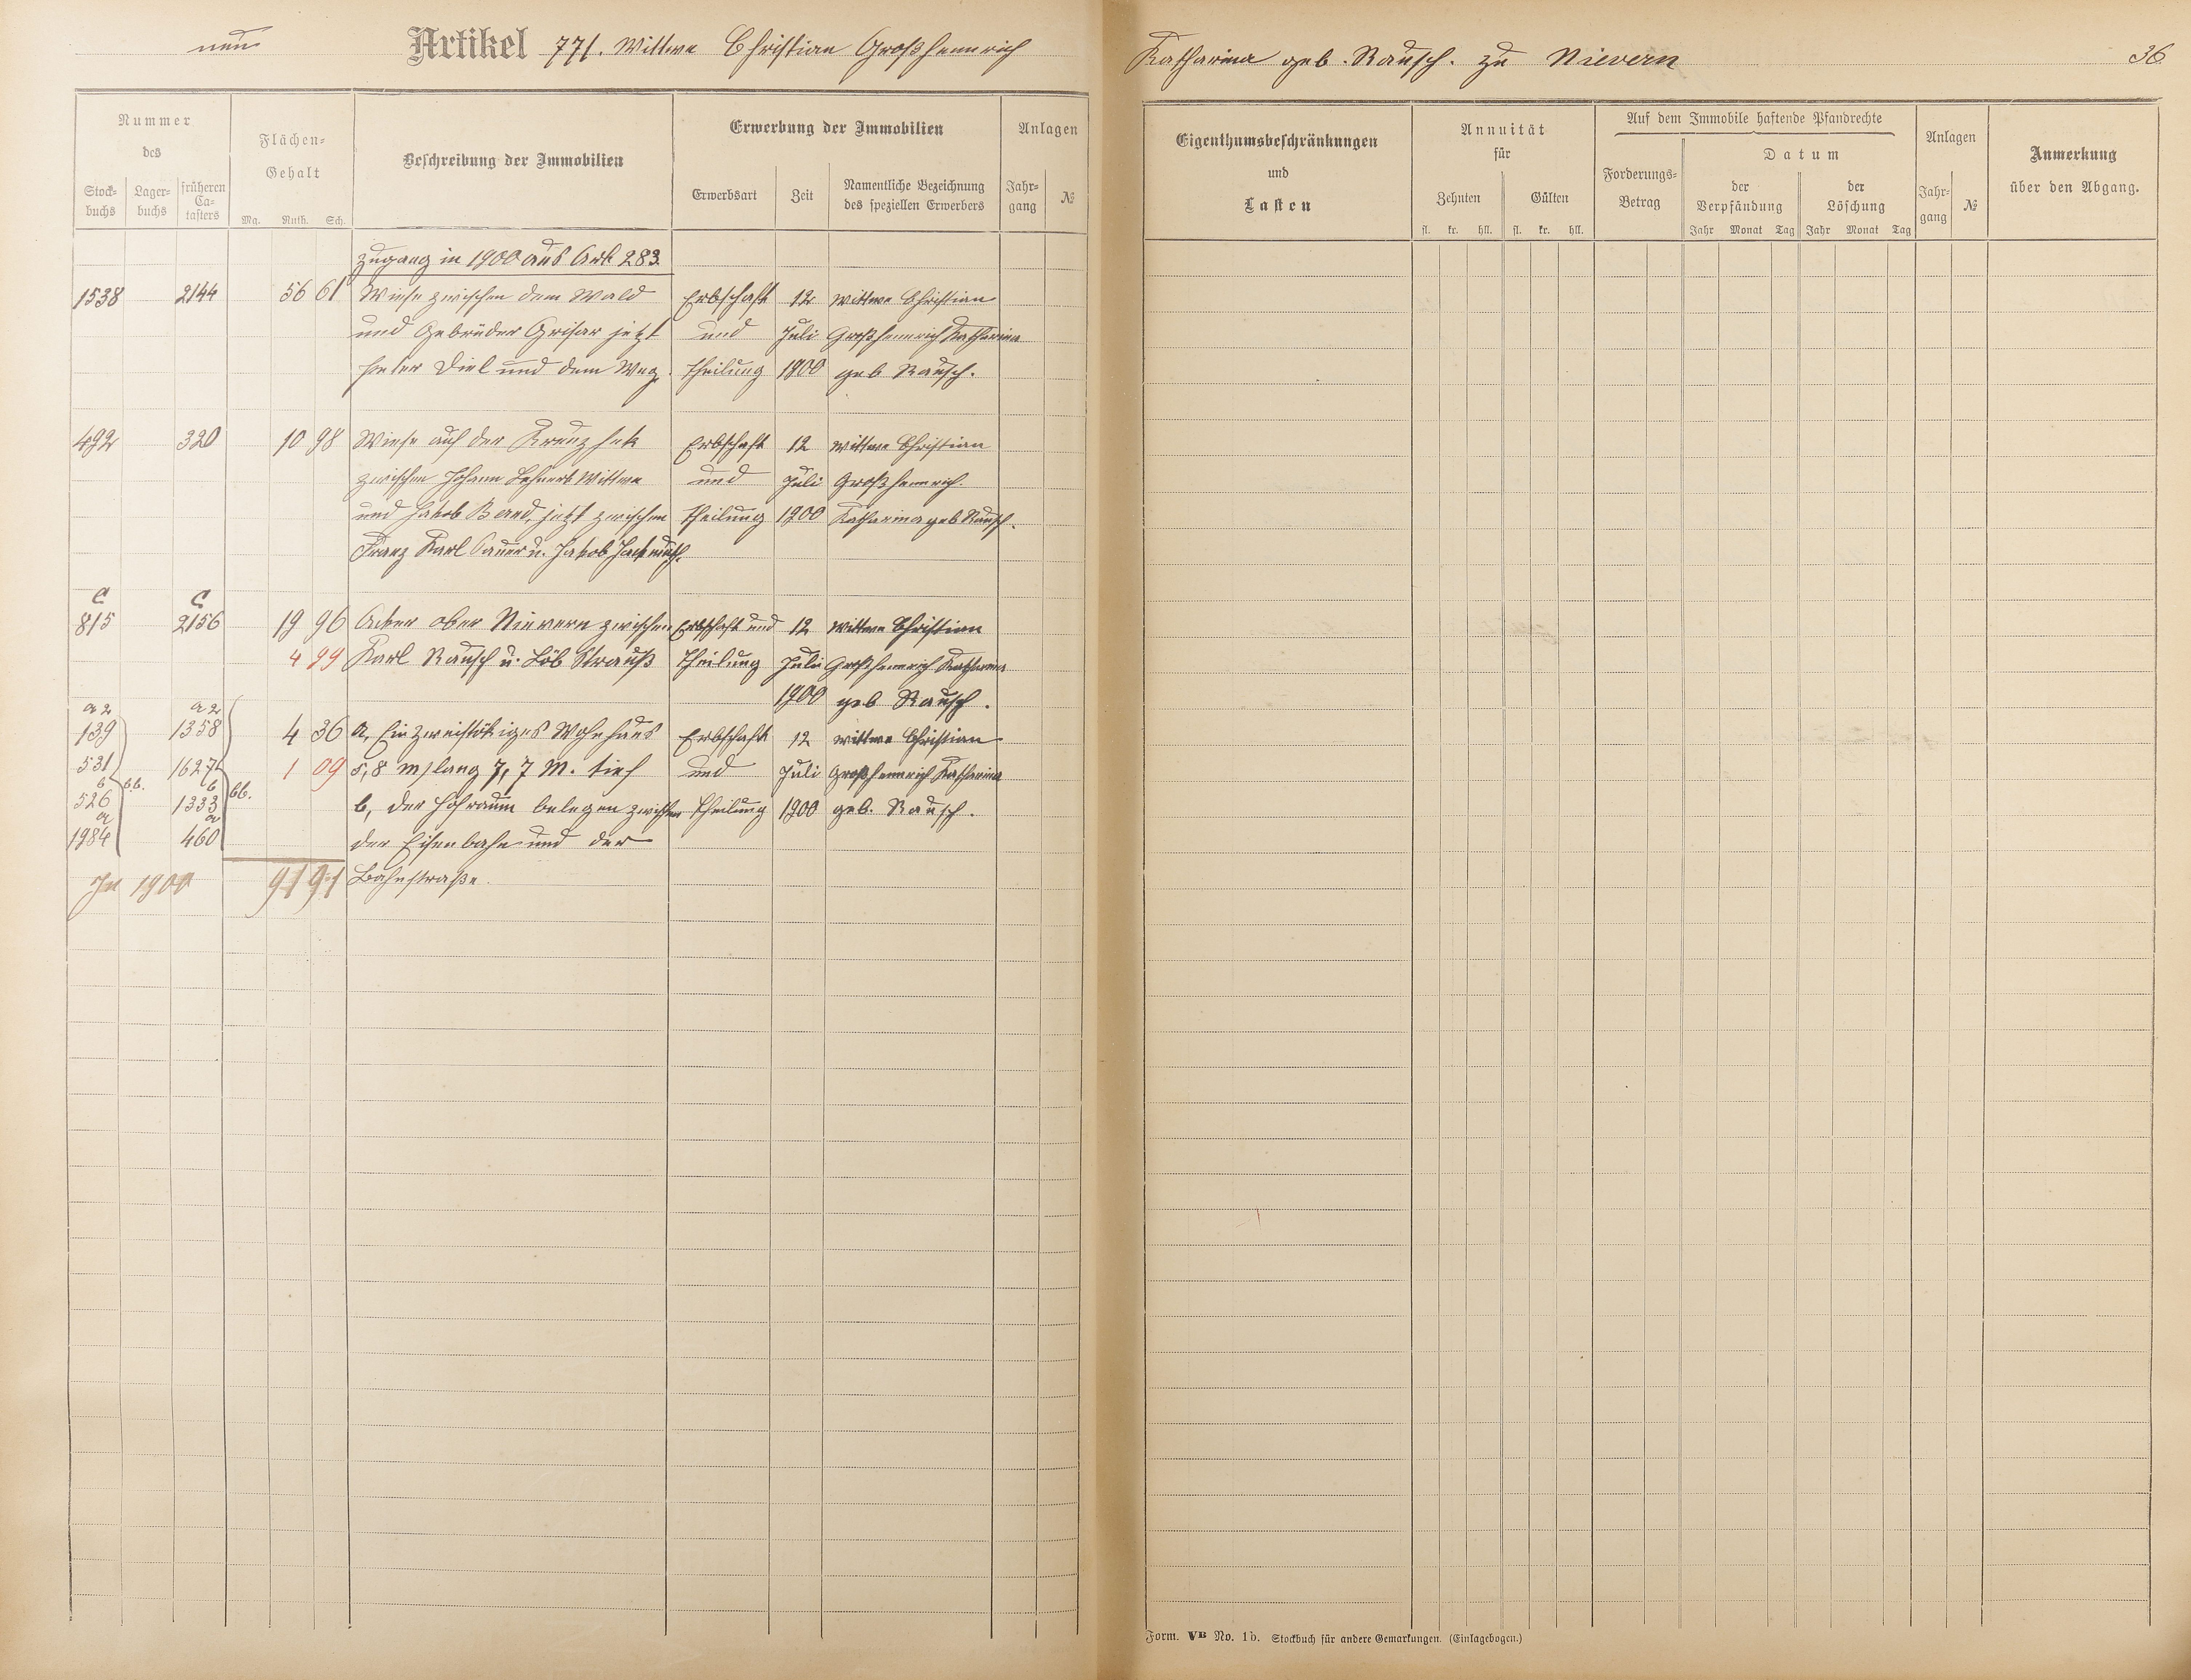 neu Artikel 771. Wittwe Christian Großhennrich Katharina geb. Rausch. zu Nievern 36
Nummer
des
Stock-
buchs
Lager-
buchs
früheren
Ca-
tasters
Flächen-
Gehalt
Mg. Ruth. Sch.
Beschreibung der Immobilien
Erwerbung der Immobilien
Erwerbsart
Zeit
Namentliche Bezeichnung
des speziellen Erwerbers
Anlagen
Jahr-
gang
№
Eigenthumsbeschränkungen
und
Lasten
Annuität
für
Zehnten
Gülten
fl. kr. hll. fl. kr. hll.
Auf dem Immobile haftende Pfandrechte
Forderungs-
Betrag
Datum
der
Verpfändung
der
Löschung
Jahr Monat Tag Jahr Monat Tag
Anlagen
Jahr-
gang
№
Anmerkung
über den Abgang.
Zugang in 1900 aus Art. 283.
1538 2144 56 61 Wiese zwischen dem Wald Erbschaft 12 Wittwe Christian
und Gebrüder Grisar jetzt und Juli Großhennrich Katharina
Diel und dem Weg. Theilung 1900 geb Rausch.
492 320 10 98 Wiese auf der Erbschaft 12 Wittwe Christian
zwischen Johann Lehnert Wittwe und Juli Großhennrich
und Jakob Band, jetzt zwischen Theilung 1900 Katharina geb Rausch.
Franz Karl u. Jakob
C C
815 2156 19 96 Acker ober Nievern zwischen Erbschaft und 12 Wittwe Christian
4 99 Karl Rausch u. Löb Strauß Theilung Juli Großhennrich Katharina
1900 geb Rausch.
a 2 a 2
139 1358 4 36 a, Ein zweistökiges Wohnhaus Erbschaft 12 Wittwe Christian
531 1627 1 09 5,8 m) lang 7,7 M. tief und Juli Großhennrich Katharina
b bb. b bb.
526 1333 b, der Hofraum belegen zwischen Theilung 1900 geb. Rausch.
a a
1984 460 der Eisenbahn und der
In 1900 91 91 Bahnstraße.
Form. VB No. 1b. Stockbuch für andere Gemarkungen. (Einlagebogen.)